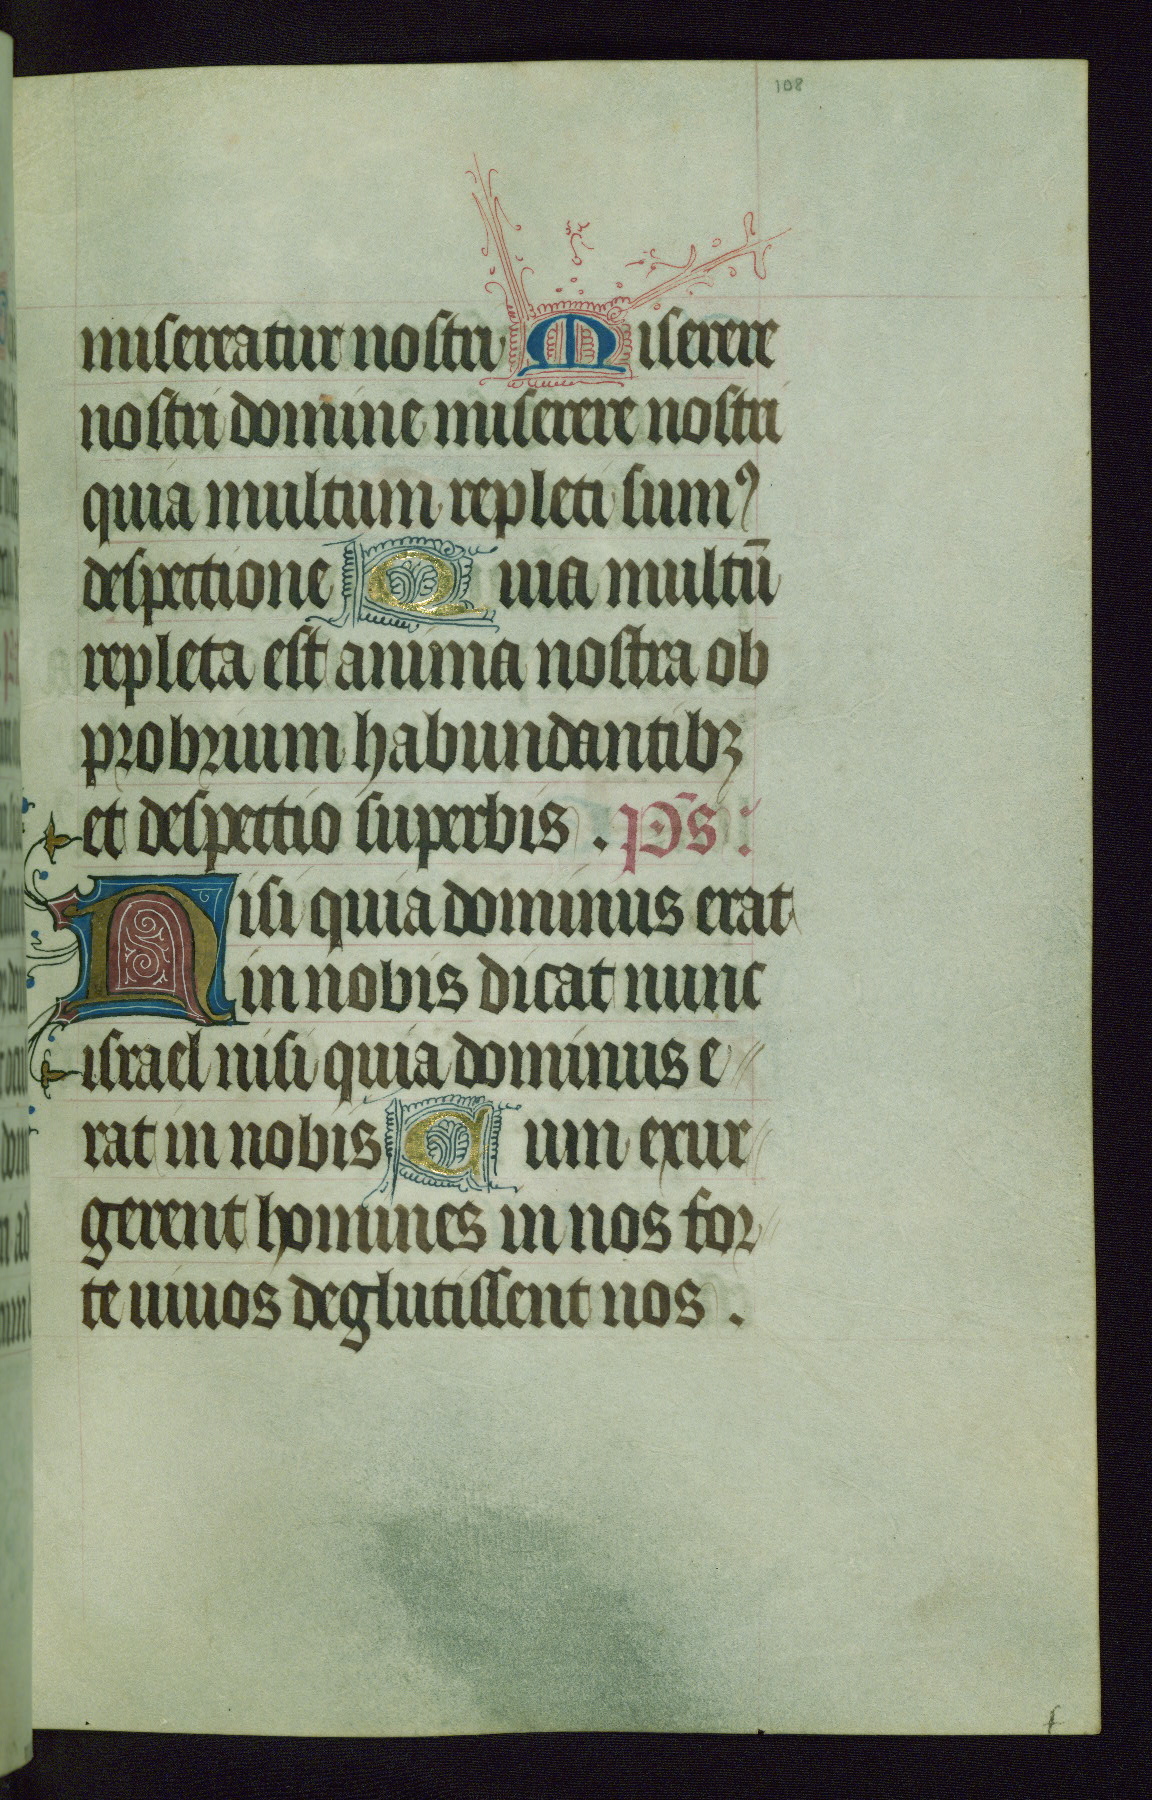 108
misereatur nostri Miserere
nostri domine miserere nostri
quia multum repleti sumꝰ
despectione Quia multū
repleta est anima nostra ob
probrium habundantibꝫ
et despectio superbis . p̄s :
Nisi quia dominus erat
in nobis dicat nunc
israel nisi quia dominus e
rat in nobis Cum exur
gerent homines in nos for
te uiuos deglutissent nos .